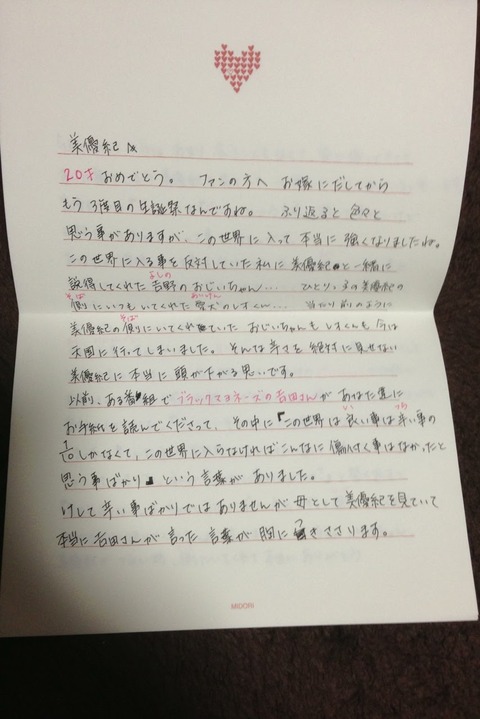 美優紀へ
20才おめでとう。 ファンの方へ お嫁にだしてから
もう3度目の生誕祭なんですね。 ふり返ると色々と
思う事がありますが、この世界に入って本当に強くなりましたね。
この世界に入る事を反対していた私に美優紀と一緒に
よしの
説得してくれた吉野のおじいちゃん…… ひとりっ子の美優紀の
そば あいけん
側にいつもいてくれた愛犬のレオくん… 当たり前のように
そば
美優紀の側りにいてくれていた おじいちゃんもレオくんも今は
天国に行ってしまいました。そんな辛さを絶対に見せない
美優紀に本当に頭が下がる思いです。
以前、ある番組でブラックマヨネーズの吉田さんがあなた達に
い つら
お手紙を読んでくださって、その中に『この世界は良い事は辛い事の
1/10しかなくて、この世界に入らなければこんなに傷付く事はなかったと
思う事ばかり』という言葉がありました。
けして辛い事ばかりではありませんが母として美優紀を見ていて
本当に吉田さんが言った言葉が胸につきささります。
MIDORI